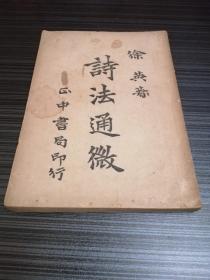 徐英著
詩法通微
正中書局印行